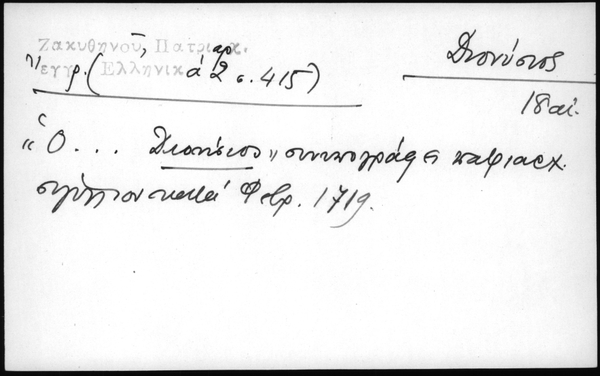 Ζακυθηνού, Πατριαρχ.
εγγρ. (Ελληνικά 2 σ. 415)
Διονύσιος
18 αι.
"Ὁ ... Διονύσιος" συνυπογράφει πατριαρχ.
σιγίλλιον κατά Φεβρ. 1719.